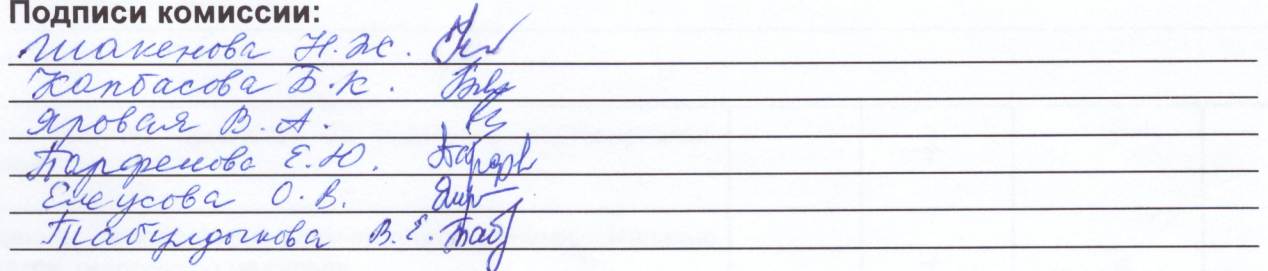 Подписи комиссии:
Шакенова Н.Ж.
Капбасова Б.К.
Яровая В.А.
Парфенова Е.Ю.
Елеусова О.В.
Табулдынова В.Е.